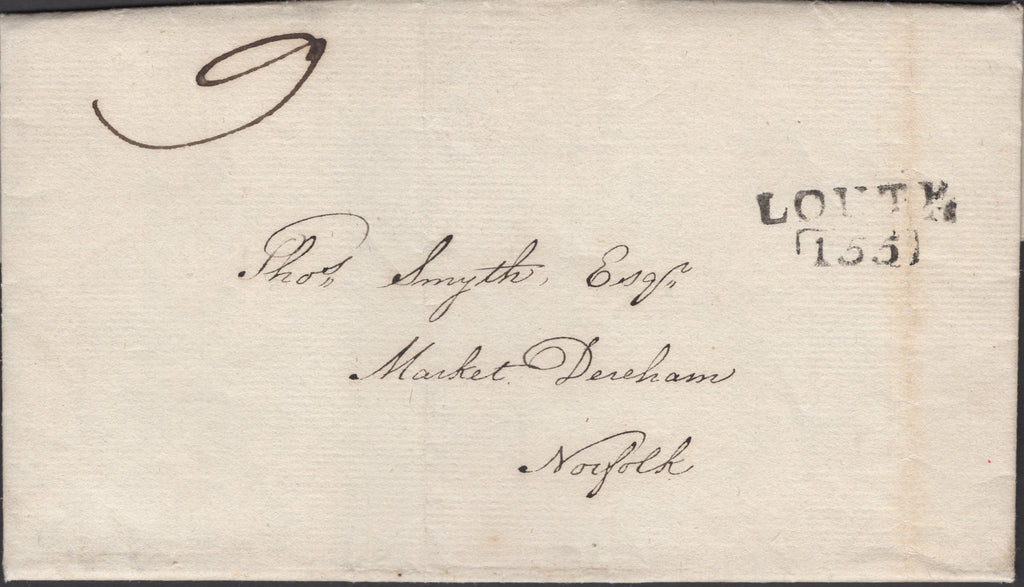 9
LOUTH
(155)
Thos. Smyth, Esqr.
Market Dereham
Norfolk